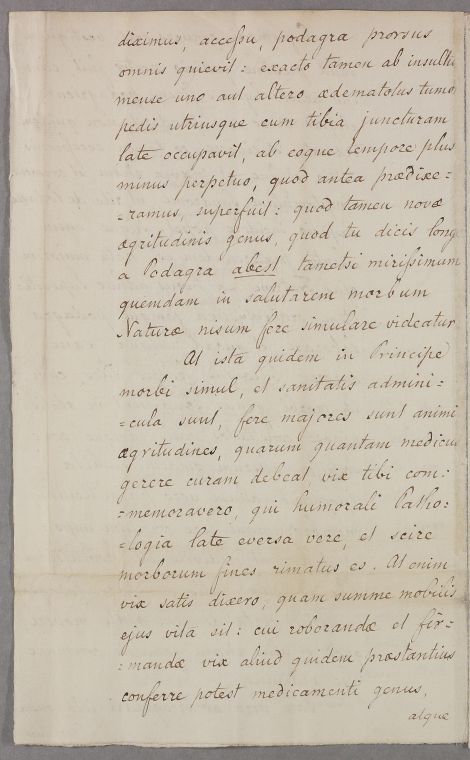 diximus, accessu, podagra prorsus
omnis quievit: exacto tamen ab insultu
mense uno aut altero ædematosus tumo
pedis utriusque cum tibia juncturam
late occupavit, ab eoque tempore plus
minus perpetuo, quod antea prædixe=
=ramus, superfuit: quod tamen novæ
ægritudinis genus, quod tu dicis long
a Podagra abest tametsi mirissimum
quemdam in salutarem morbum
Naturæ nisum fere simulare videatur
At ista quidem in Principe
morbi simul, et sanitatis admini=
=cula sunt, fere majores sunt animi
ægritudines, quarum quantam medicus
gerere curam debeat, vix tibi com:
=memoravero, qui humorali Patho=
=logia late eversa vere, et scire
morborum fines rimatus es. At enim
vix satis dixero, quam summe mobilis
ejus vita sit: cui roborandæ et fir=
=mandæ vix aliud quidem præstantius
conferre potest medicamenti genus,
atque